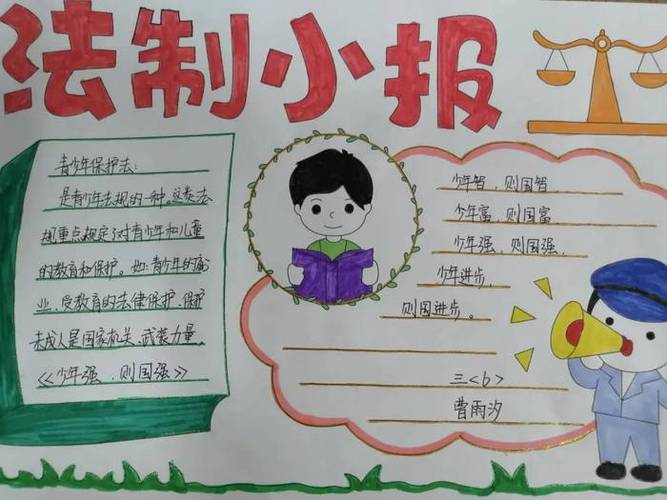 法制小报
青少年保护法:
是青少年法规的一种。这类法
规重点规定了对青少年和儿童
的教育和保护。如:青少年的就
业、受教育的法律保护、保护
未成人是国家机关、武装力量、
《少年强、则国强》
少年智、则国智
少年富、则国富
少年强、则国强、
少年进步、
则国进步。
三<6>
曹雨汐